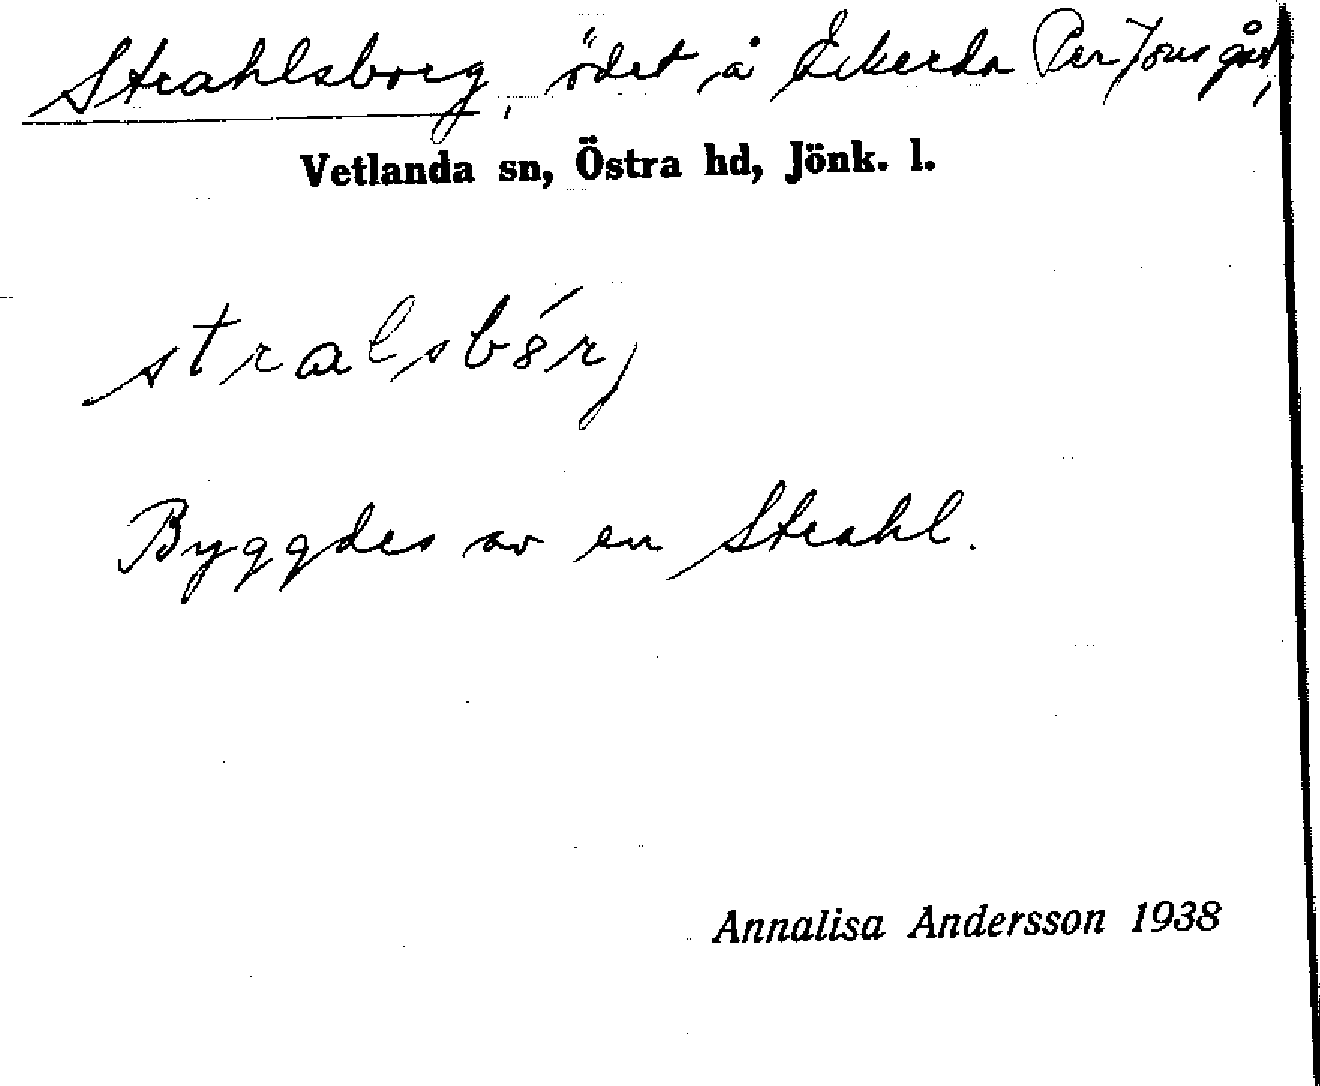 Strahlsborg, ödet å Äckerda Per Jons gård,
Vetlanda sn, Östra hd, Jönk. l.
stralsbórj
Byggdes av en Strahl.
Annalisa Andersson 1938